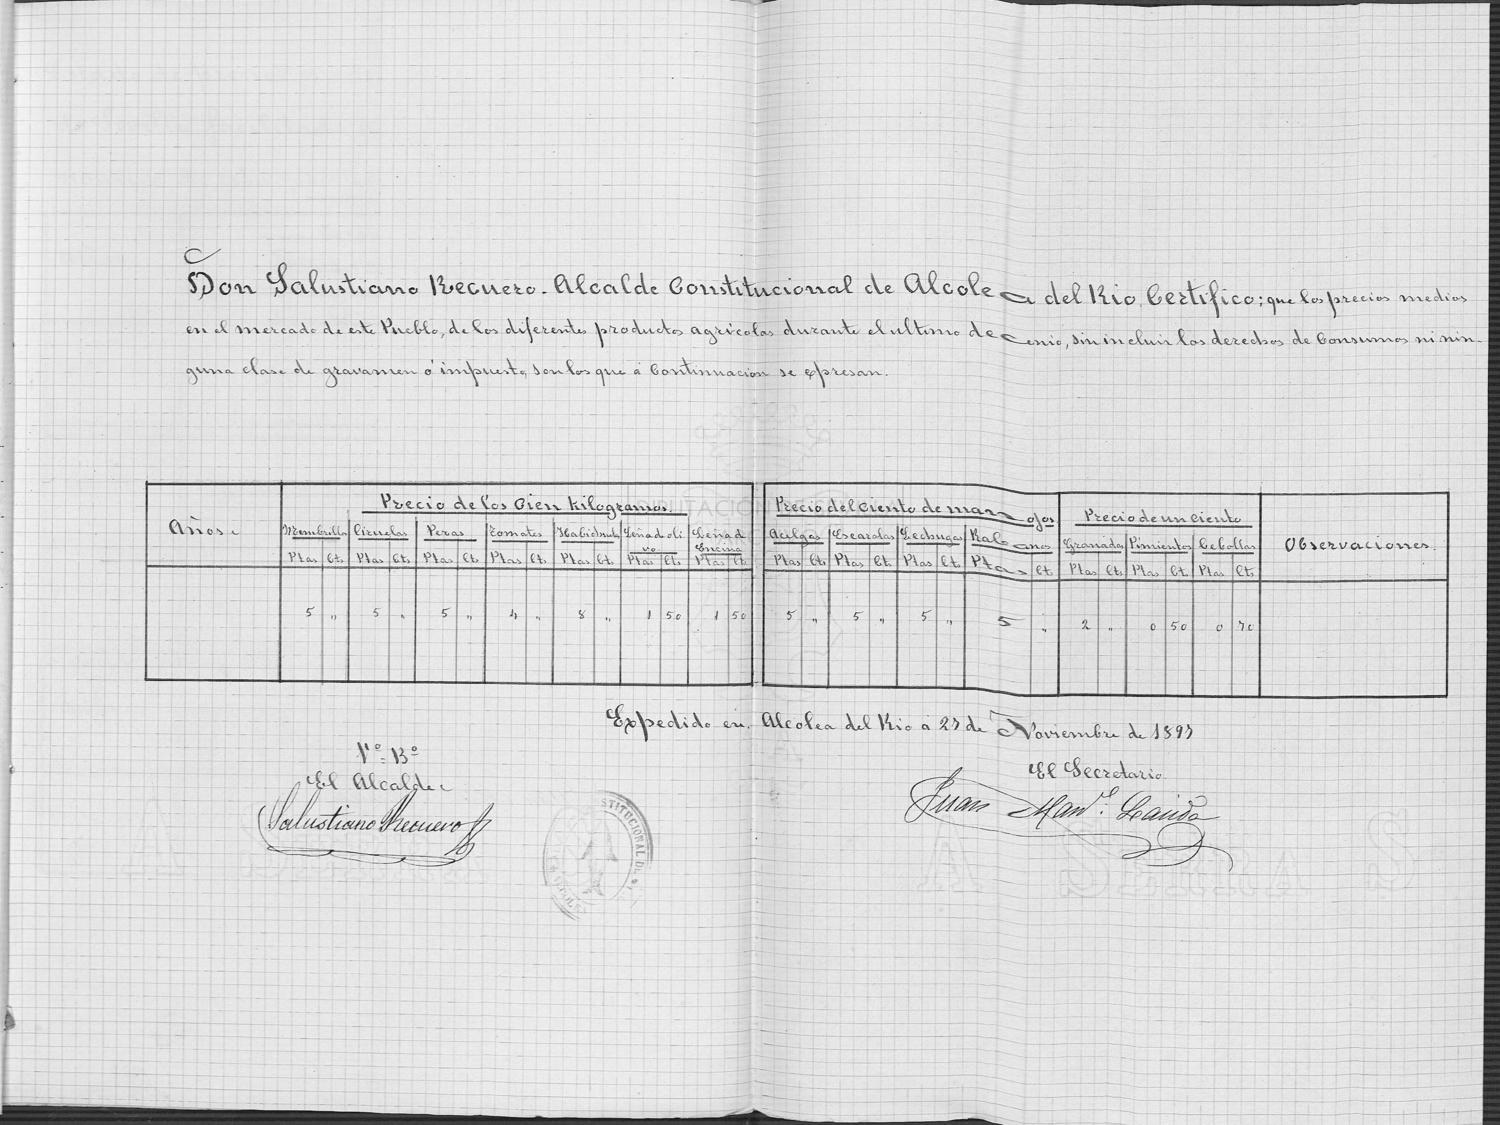 Don Salustiano Recuero. Alcalde Constitucional de Alcolea del Rio Certifico; que los precios medios
en el mercado de este Pueblo, de los diferentes productos agricolas durante el ultimo decenio, sin incluir los derechos de Consumos ni nin-
guna clase de gravamen ó impuesto, son los que á Continuacion se expresan.
Años. Precio de los Cien kilogramos. Precio del ciento de manojos Precio de un ciento Observaciones.
Membrillo Ciruelas Peras Tomates Habichuela Leña d oli vo Leña d Encina Acelgas Escarolas Lechugas Rabanos Granadas Pimientos Cebollas
Ptas Ct. Ptas Ct. Ptas Ct. Ptas Ct. Ptas Ct. Ptas Ct. Ptas Ct. Ptas Ct. Ptas Ct. Ptas Ct. Ptas Ct. Ptas Ct. Ptas Ct. Ptas Ct.
5 " 5 " 5 " 4 " 8 " 1 50 1 50 5 " 5 " 5 " 5 " 2 " 0 50 0 70
Expedido en Alcolea del Rio á 27 de Noviembre de 1897
Vº Bº
El Alcalde
Salustiano Recuero
El Secretario
Juan Man.l
STITUCIONAL DE
ALCOLEA